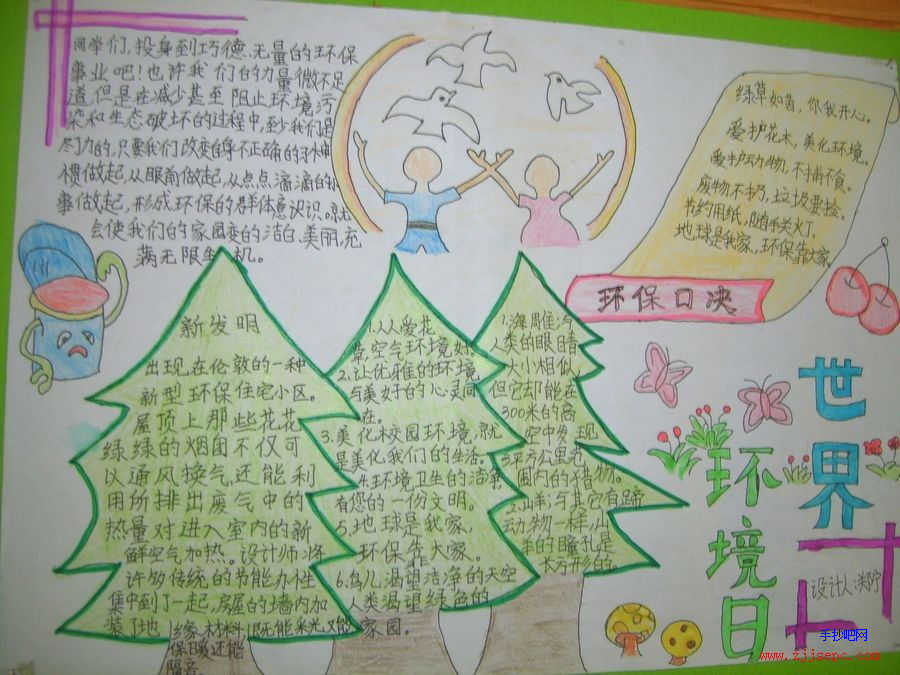 同学们,投身到巧德无量的环保
事业吧!也许我们的力量微不足
道,但是在减少甚至阻止环境污
染和生态破坏的过程中,至少我们是
尽力的,只要我们改变自身不正确的
惯做起,从眼前做起,从点点滴滴的小
事做起,形成环保的群体意识。就
会使我们的家园变的洁白、美丽、充
满无限生机。
绿草如茵,你我开心。
爱护花木,美化环境。
爱护动物,不捕不食。
废物不扔,垃圾要捡。
节约用纸,随手关灯。
地球是我家,环保靠大家
环保口决
新发明
出现在伦敦的一种
新型环保住宅小区。
屋顶上那些花花
绿绿的烟囱不仅可
以通风换气,还能利
用所排出废气中的
热量对进入室内的新
鲜空气加热。设计师将
许多传统的节能办性
集中到了一起,房屋的墙内加
装了地
缘材料,既能采光,又能
保暖还能
隔音
1.人人爱花
草,空气环境好。
2.让优雅的环境
与美好的心灵同
在。
3.美化校园环境,就
是美化我们的生活。
4.环境卫生的洁净
有您的一份文明。
5.地球是我家,
环保靠大家。
6.鸟儿渴望洁净的天空
人类渴望绿色的
家园。
1.海雕与
人类的眼睛
大小相似,
但它却能在
300米的高
空中发现
3平方公里范
围内的猎物。
2.山羊:与其它有蹄
动物一样,山
羊的瞳孔是
长方形的。
世界
环境日
设计人:
手抄吧网
www.zjjsepc.com